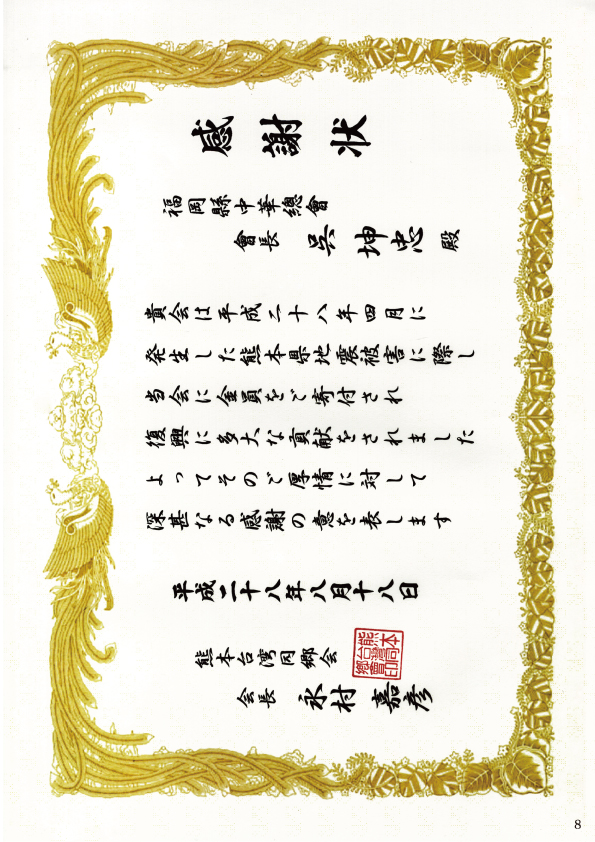 感謝状
福岡縣中華總會
會長 呉坤忠殿
貴会は平成二十八年四月に
発生した熊本県地震被害に際し
当会に金員をご寄付され
復興に多大な貢献をされました
よってそのご厚情に対して
深甚なる感謝の意を表します
平成二十八年八月十八日
熊本台湾同郷会
会長 永村嘉彦
8